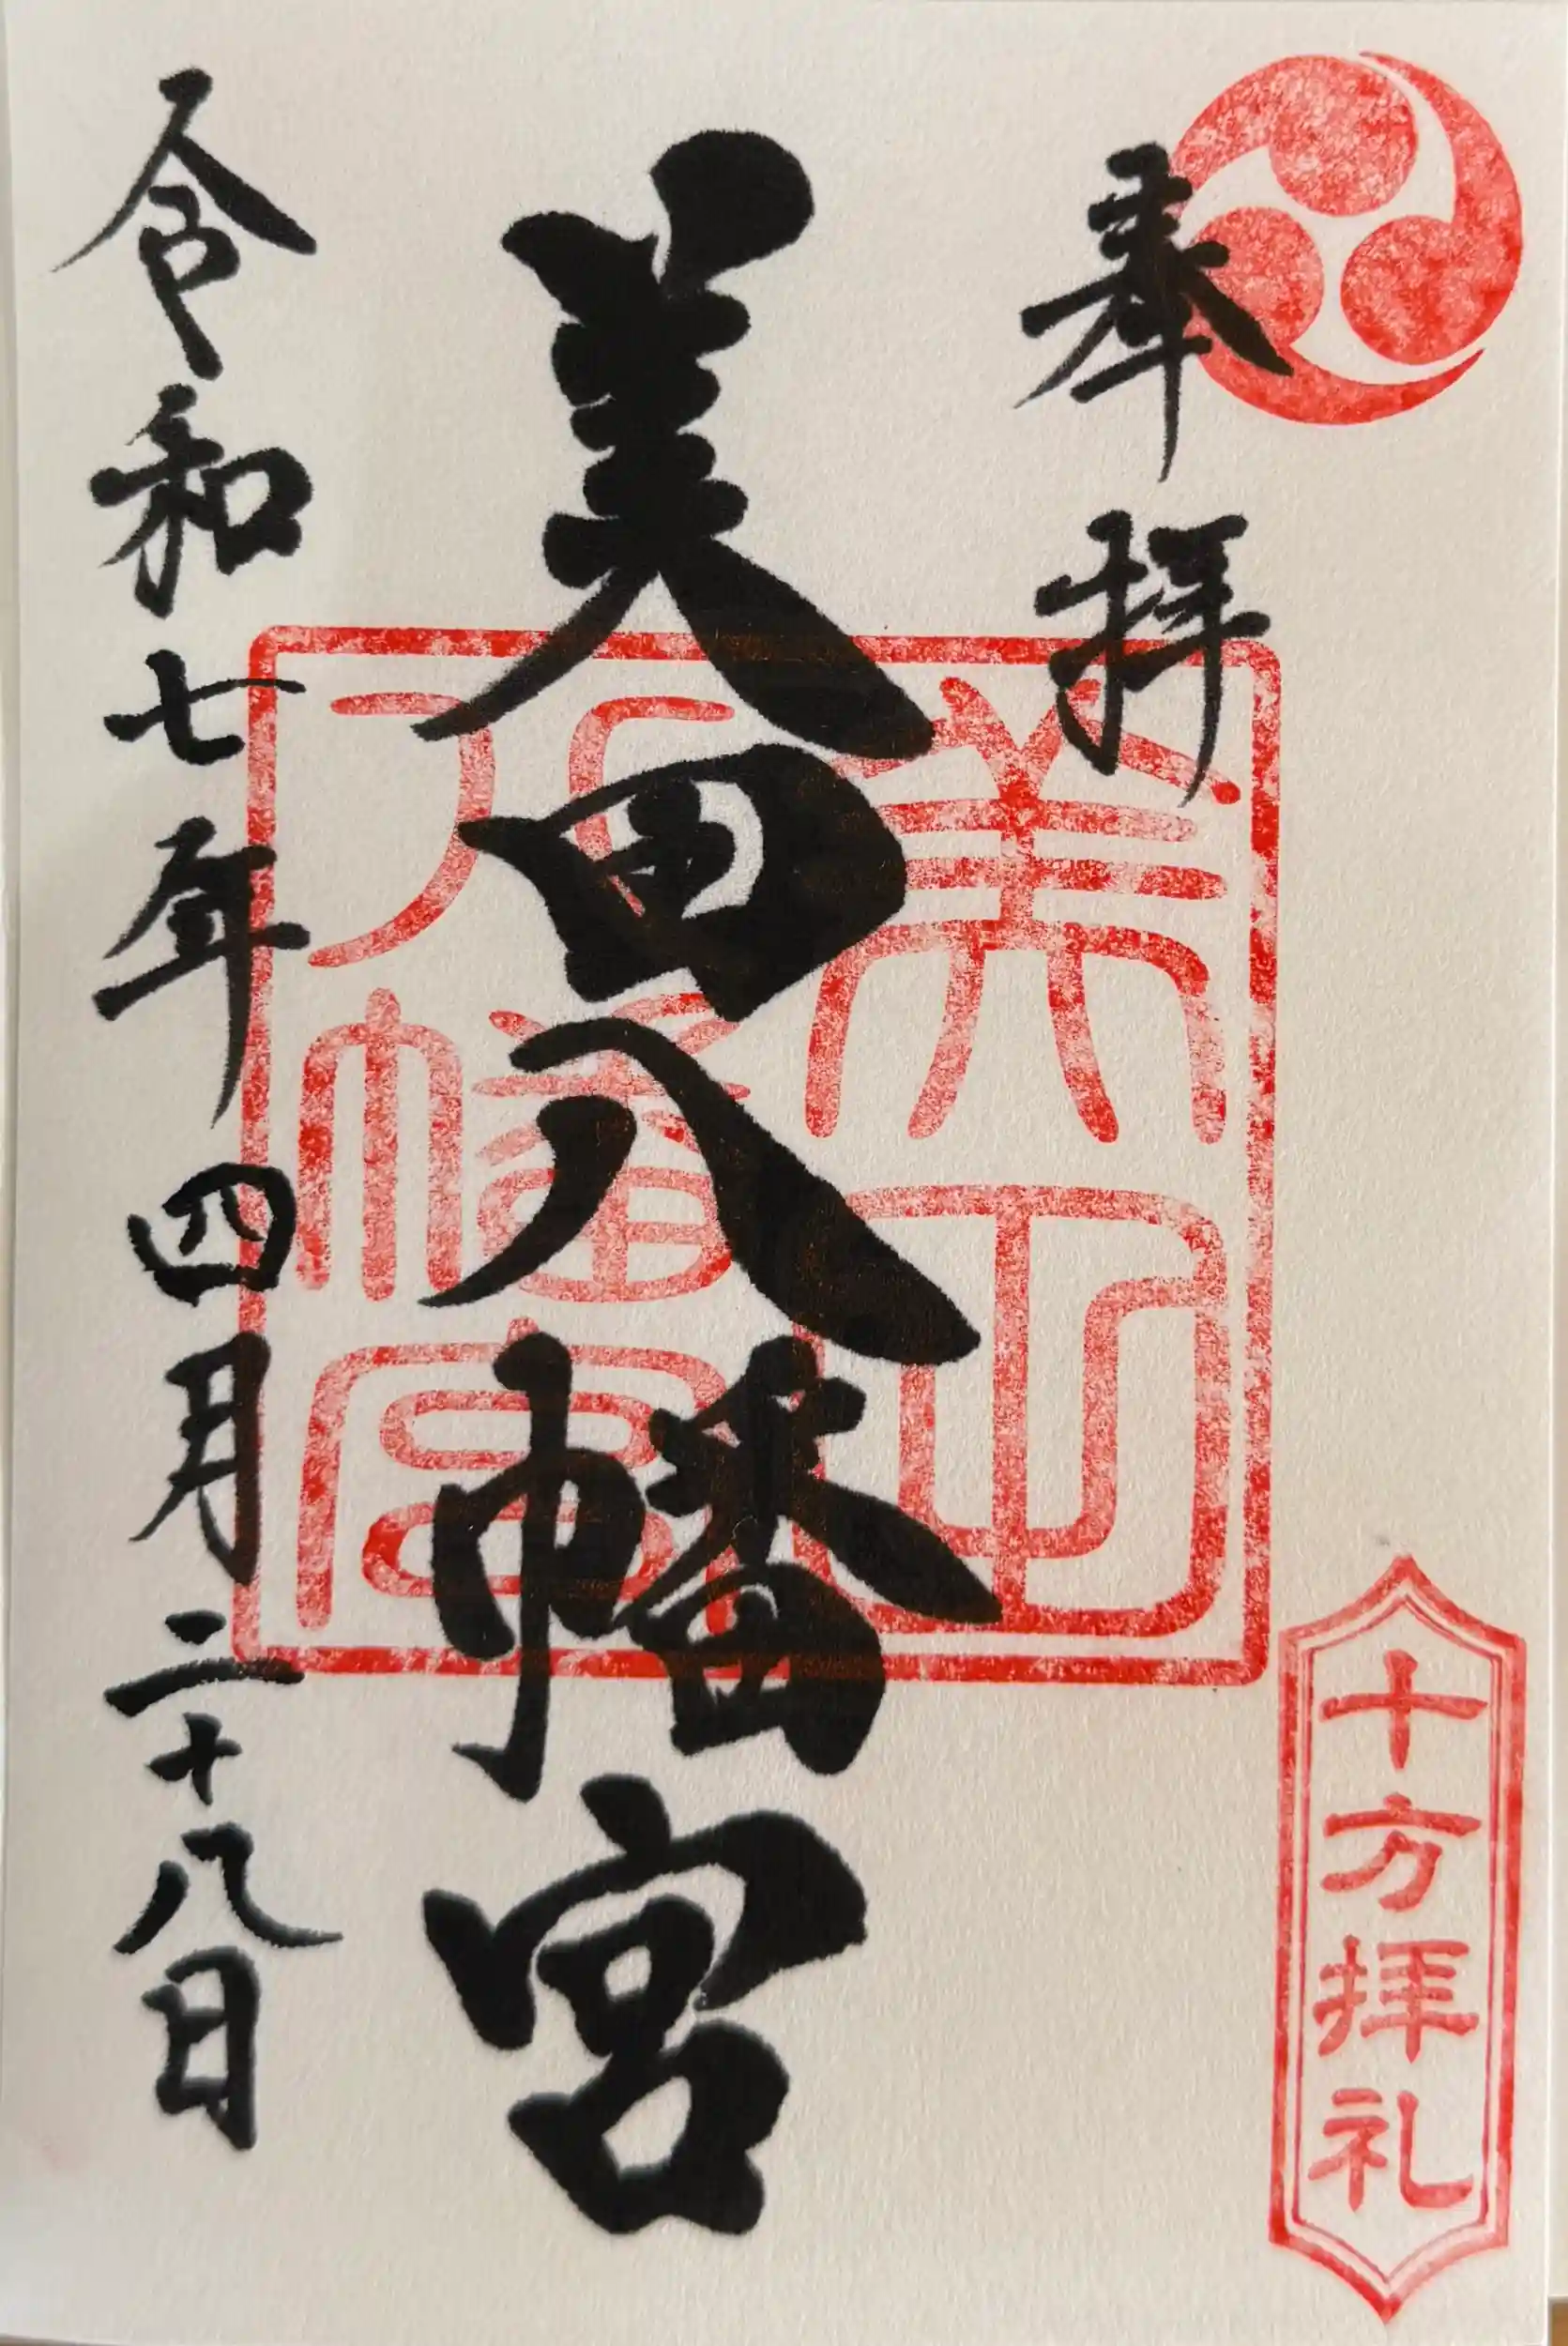 奉拝
十方拝礼
美田八幡宮
美田
八幡宮
令和七年四月二十八日